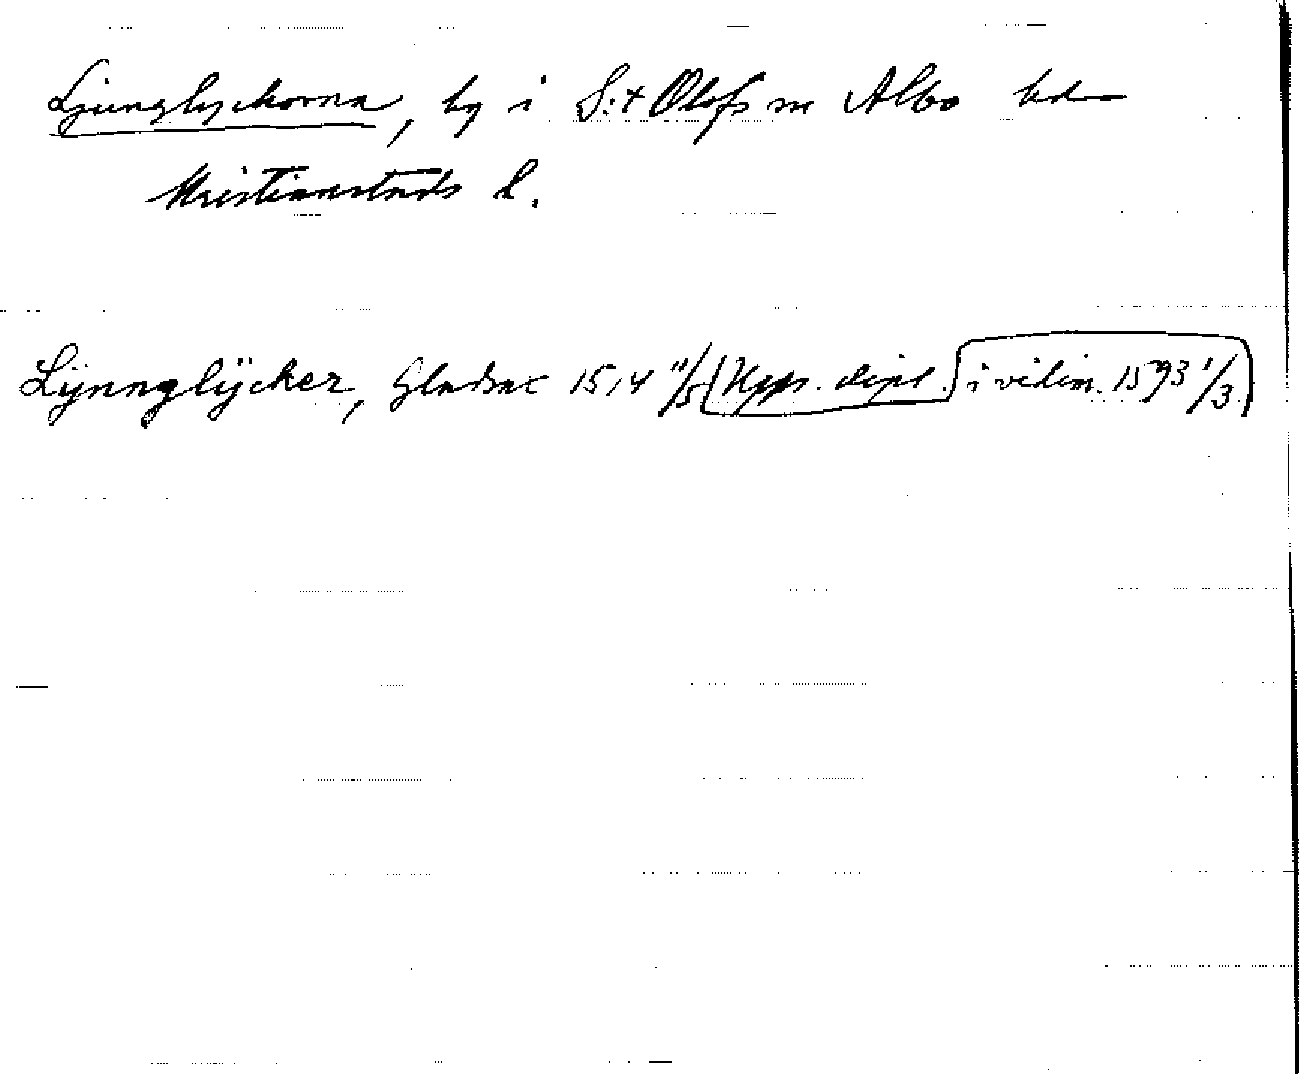 Ljunglyckorna, by i S:t Olofs sn Albo hd
Kristianstads l.
Lÿnnglÿcker, Gladsax 1514 11/5 (Kpps. dipl. i vidim. 1593 1/3.)